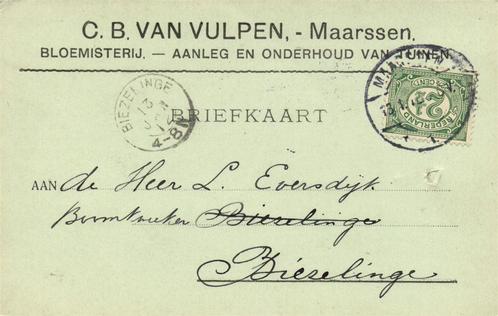 C. B. VAN VULPEN, - Maarssen.
BLOEMISTERIJ. — AANLEG EN ONDERHOUD VAN TUINEN.
MAARSSEN
2½
CENT
NEDERLAND
BIEZELINGE
4-8N
BRIEFKAART
AAN de Heer L. Eversdijk
Boomkweker Bieselinge
Bieselinge